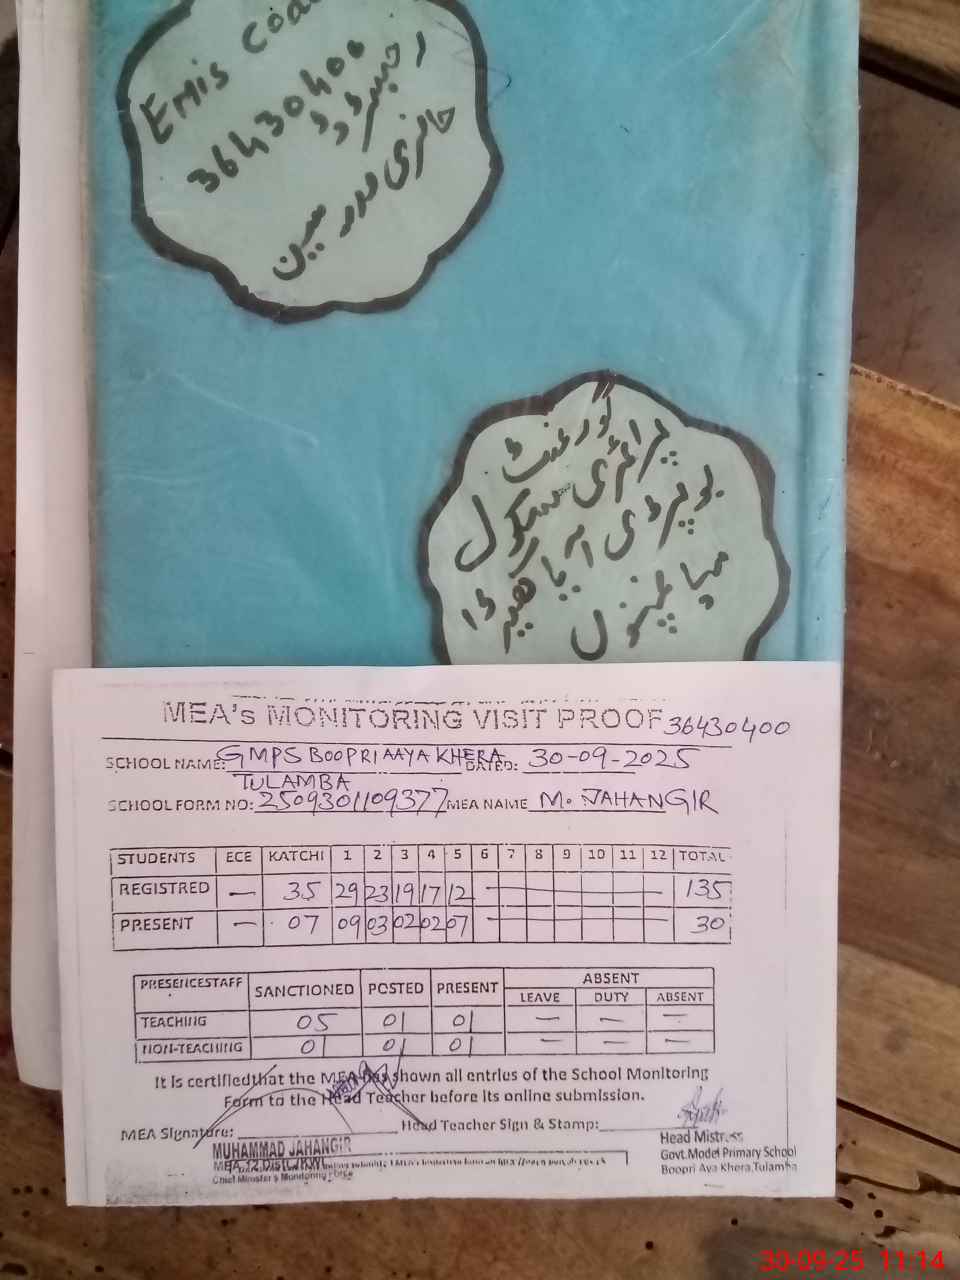 EMIS Code
36430400
رجسٹرڈ
حاضری مدرسین
گورنمنٹ
پرائمری سکول
بوپڑی آیا کھیڑا
میاں چنوں
MEA's MONITORING VISIT PROOF 36430400
SCHOOL NAME: GMPS BOOPRI AAYA KHERA DATED: 30-09-2025
TULAMBA
SCHOOL FORM NO: 2509301109377 MEA NAME M. JAHANGIR
STUDENTS ECE KATCHI 1 2 3 4 5 6 7 8 9 10 11 12 TOTAL
REGISTRED — 35 29 23 19 17 12 — 135
PRESENT — 07 09 03 02 02 07 — 30
PRESENCESTAFF SANCTIONED POSTED PRESENT ABSENT
LEAVE DUTY ABSENT
TEACHING 05 01 01 — — —
NON-TEACHING 01 01 01 — — —
It is certified that the MEA has shown all entries of the School Monitoring
Form to the Head Teacher before its online submission.
MEA Signature: Head Teacher Sign & Stamp:
MUHAMMAD JAHANGIR
Chief Minister's Monitoring Force
Head Mistress
Govt.Model Primary School
Boopri Aya Khera,Tulamba
30-09-25 11:14